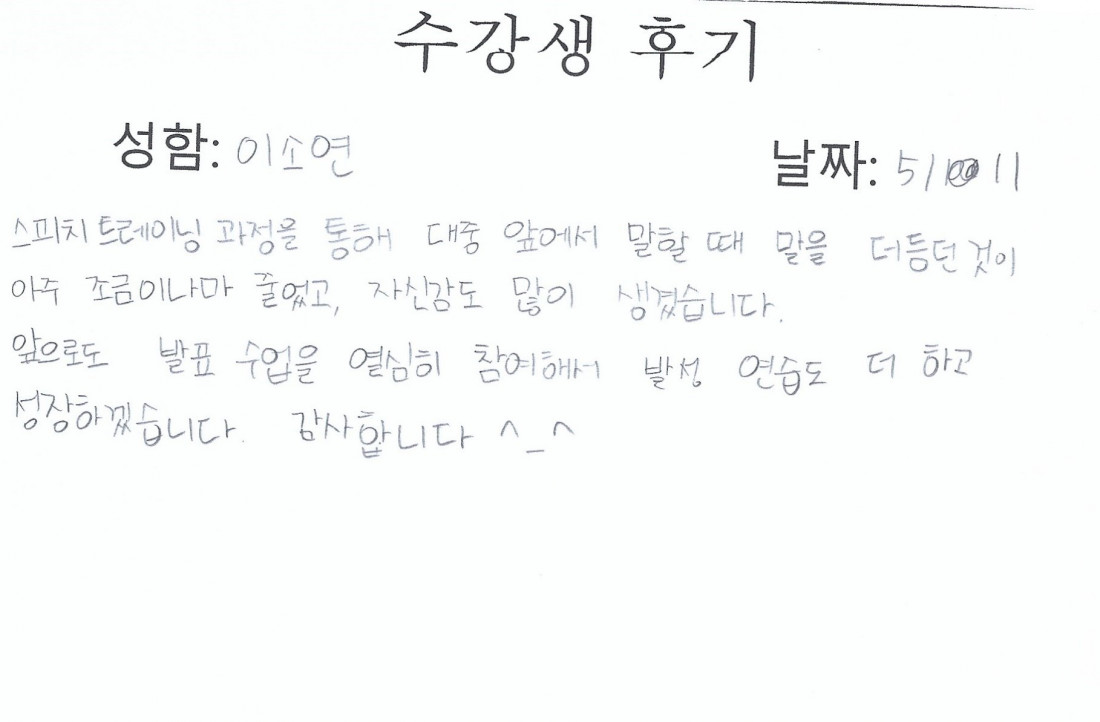 수강생 후기
성함: 이소연
날짜: 5/11
스피치 트레이닝 과정을 통해 대중 앞에서 말할 때 말을 더듬던 것이
아주 조금이나마 줄었고, 자신감도 많이 생겼습니다.
앞으로도 발표 수업을 열심히 참여해서 발성 연습도 더 하고
성장하겠습니다. 감사합니다 ^_^